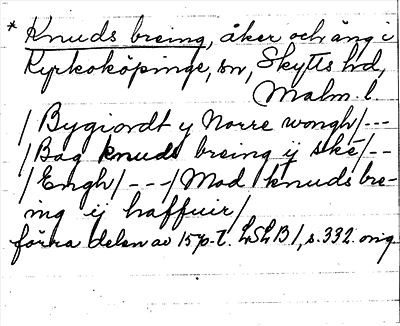 * Knuds breing, åker och äng i
Kyrkoköpinge, sn, Skytts hd,
Malm. l.
/ Bygiordt y Norre wongh /---
/ Bag knuds breing ij ske /--
/ Engh / --- / Mod knuds bre-
ing ij haffuir /
förra delen av 15/p.-t. LSLB 1, s. 332. orig.